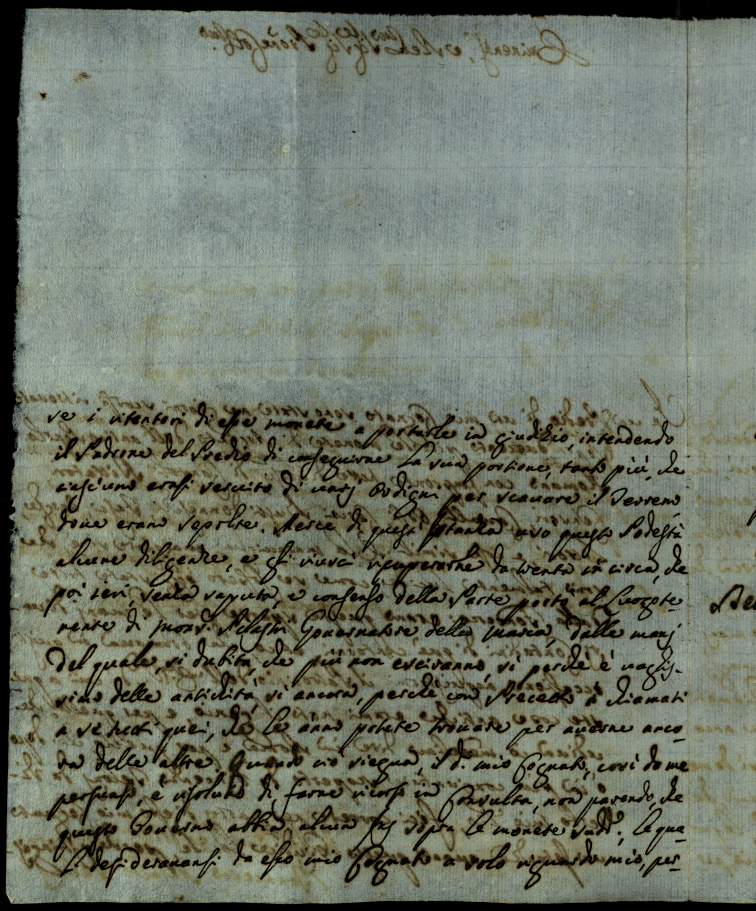 se i ritentori di esse monete a portarle in giudizio, intendendo
il Padrone del Predio di conseguirne la sua portione, tanto più, che
ciascuno erasi vestuto di varj Ordigni per scavare il Terreno
dove erano sepolte. Mercè di questi usò questo Podestà
alcune diligenze, e gli riuscì ricuperarne da trenta in circa, che
poi ieri, senza saputa, e consenso della Parte portò al Luogote
nente di Governatore della Marca, dalle manj
del quale, si dubita, che più non esciranno, sì perchè è vaghis-
simo delle antichità, sì ancora, perchè con Precetto à chiamati
a se tutti quei, che le anno potute trovare per averne anco-
ra delle altre. Quando ciò siegua, il d.o mio Cognato, così da me
persuaso, è risoluto di farne ricorso in Consulta, non parendo, che
questo Governo abbia alcun Jus sopra le monete sudd.e, le qua-
li desideravansi da esso mio Cognato a solo riguardo mio, per-